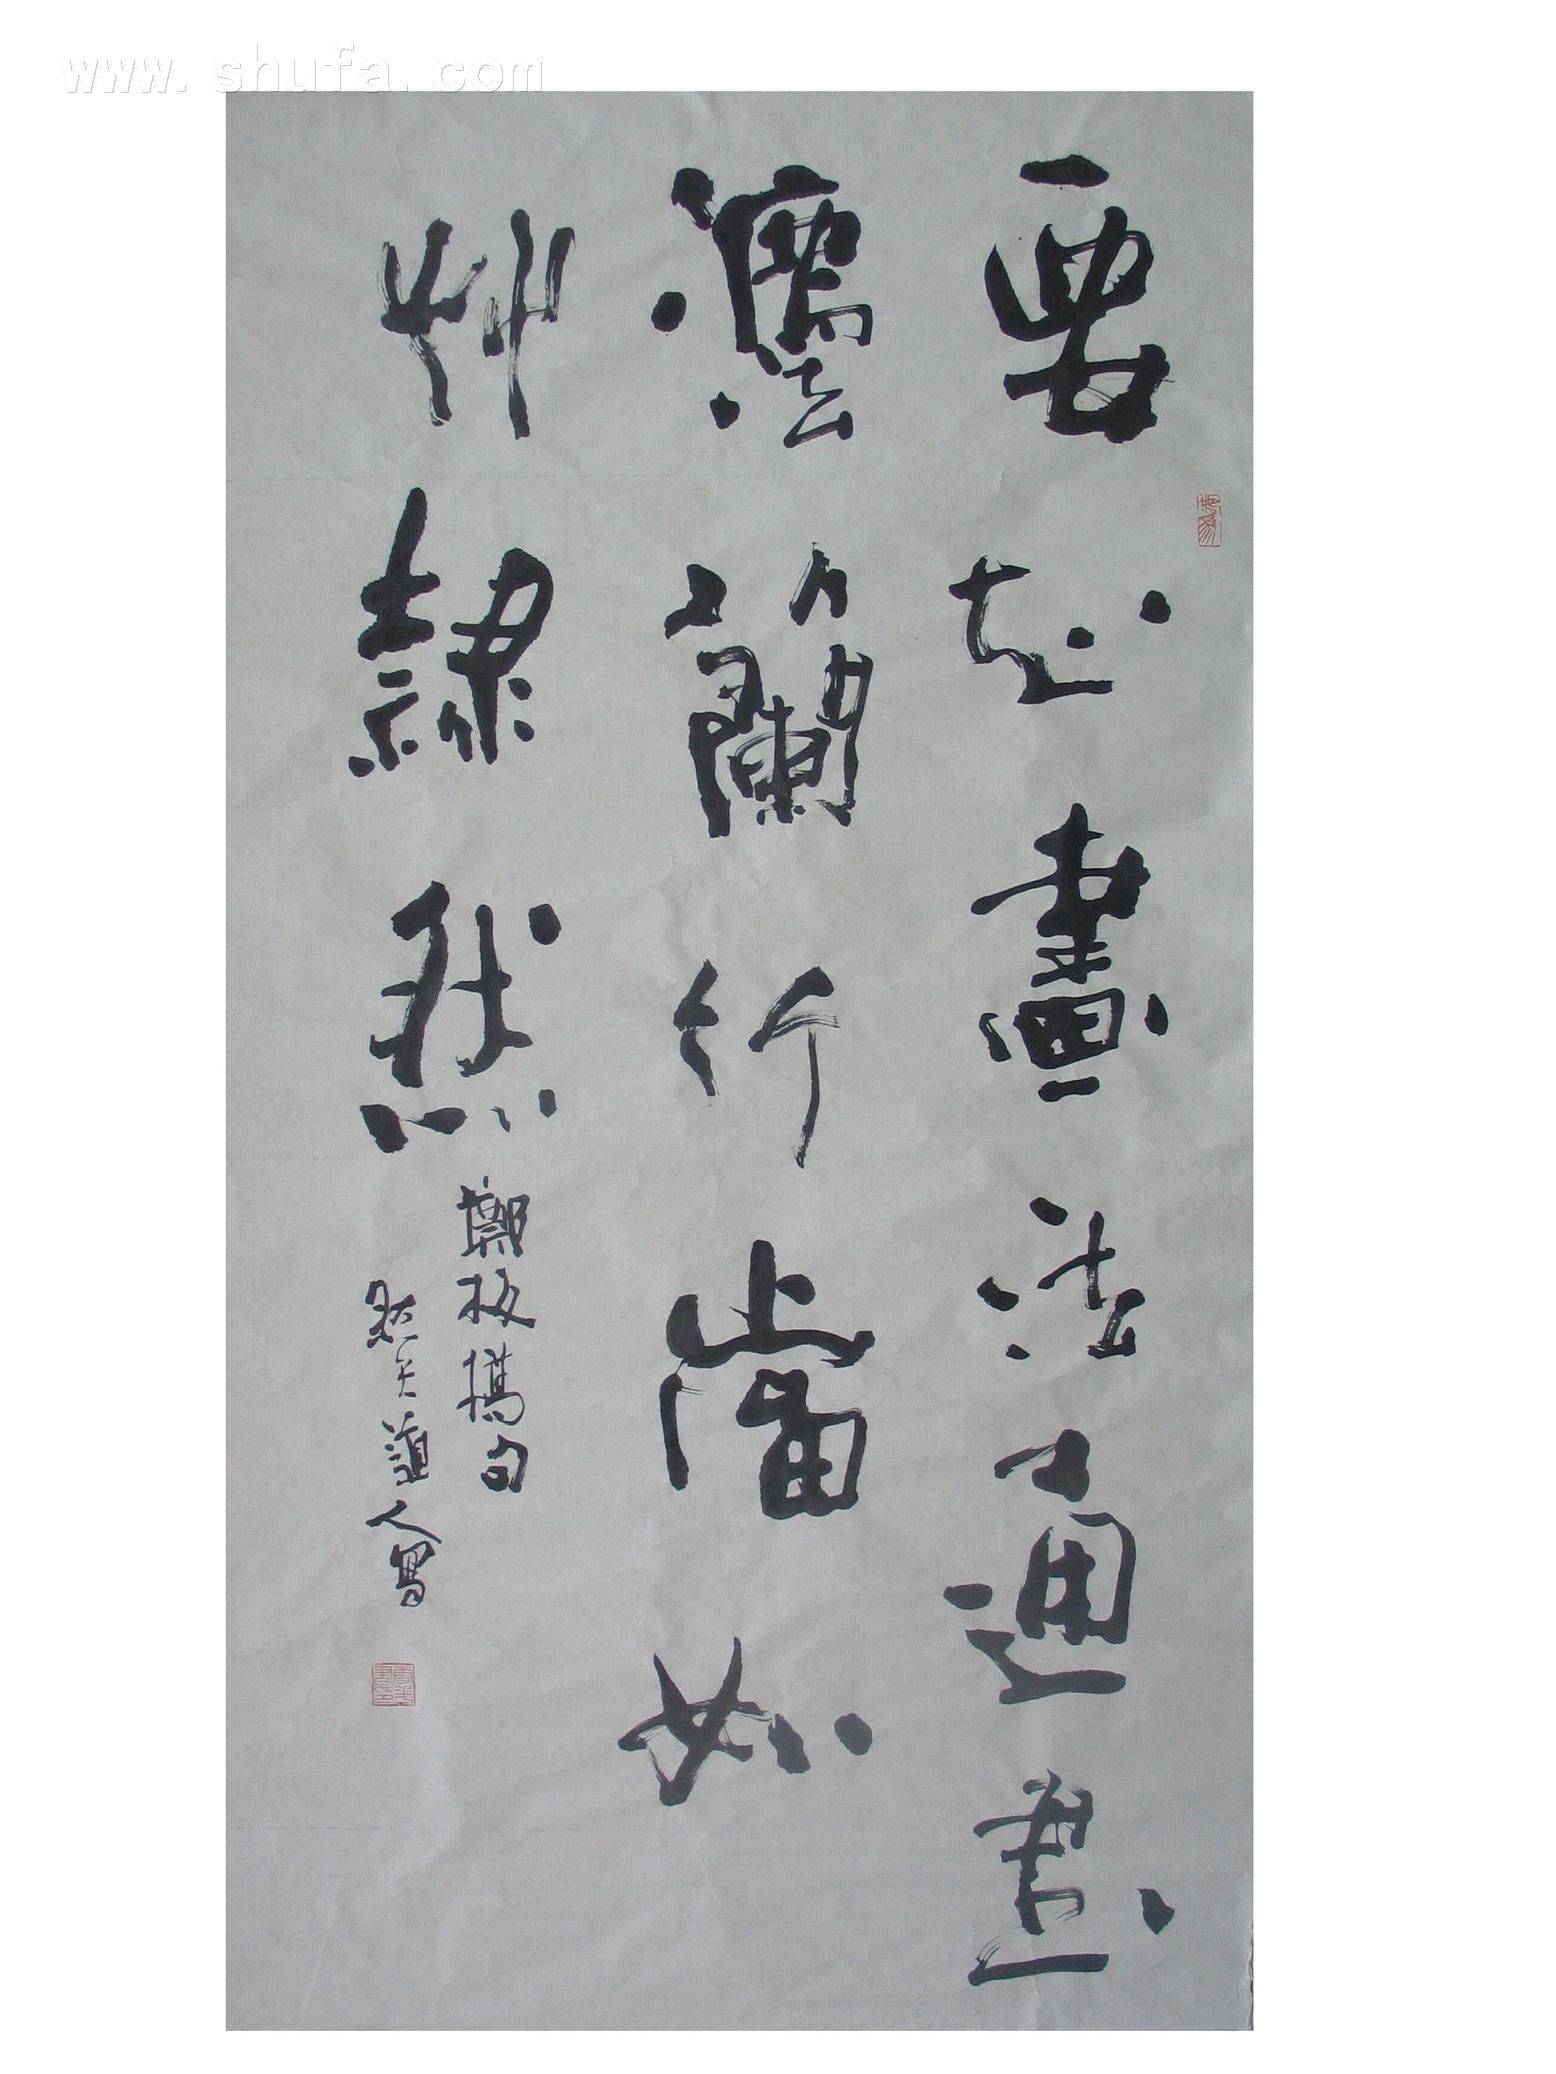 www.shufa.com
要知畫法通書
灋蘭竹當如
艸隸然
鄭板橋句
道人寫